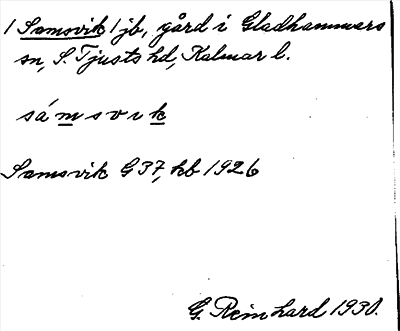 / Samsvik / jb, gård i Gladhammars
sn, S. Tjusts hd, Kalmar l.
sámsvik
Samsvik G 37, kb 1926
G. Reinhard 1930.